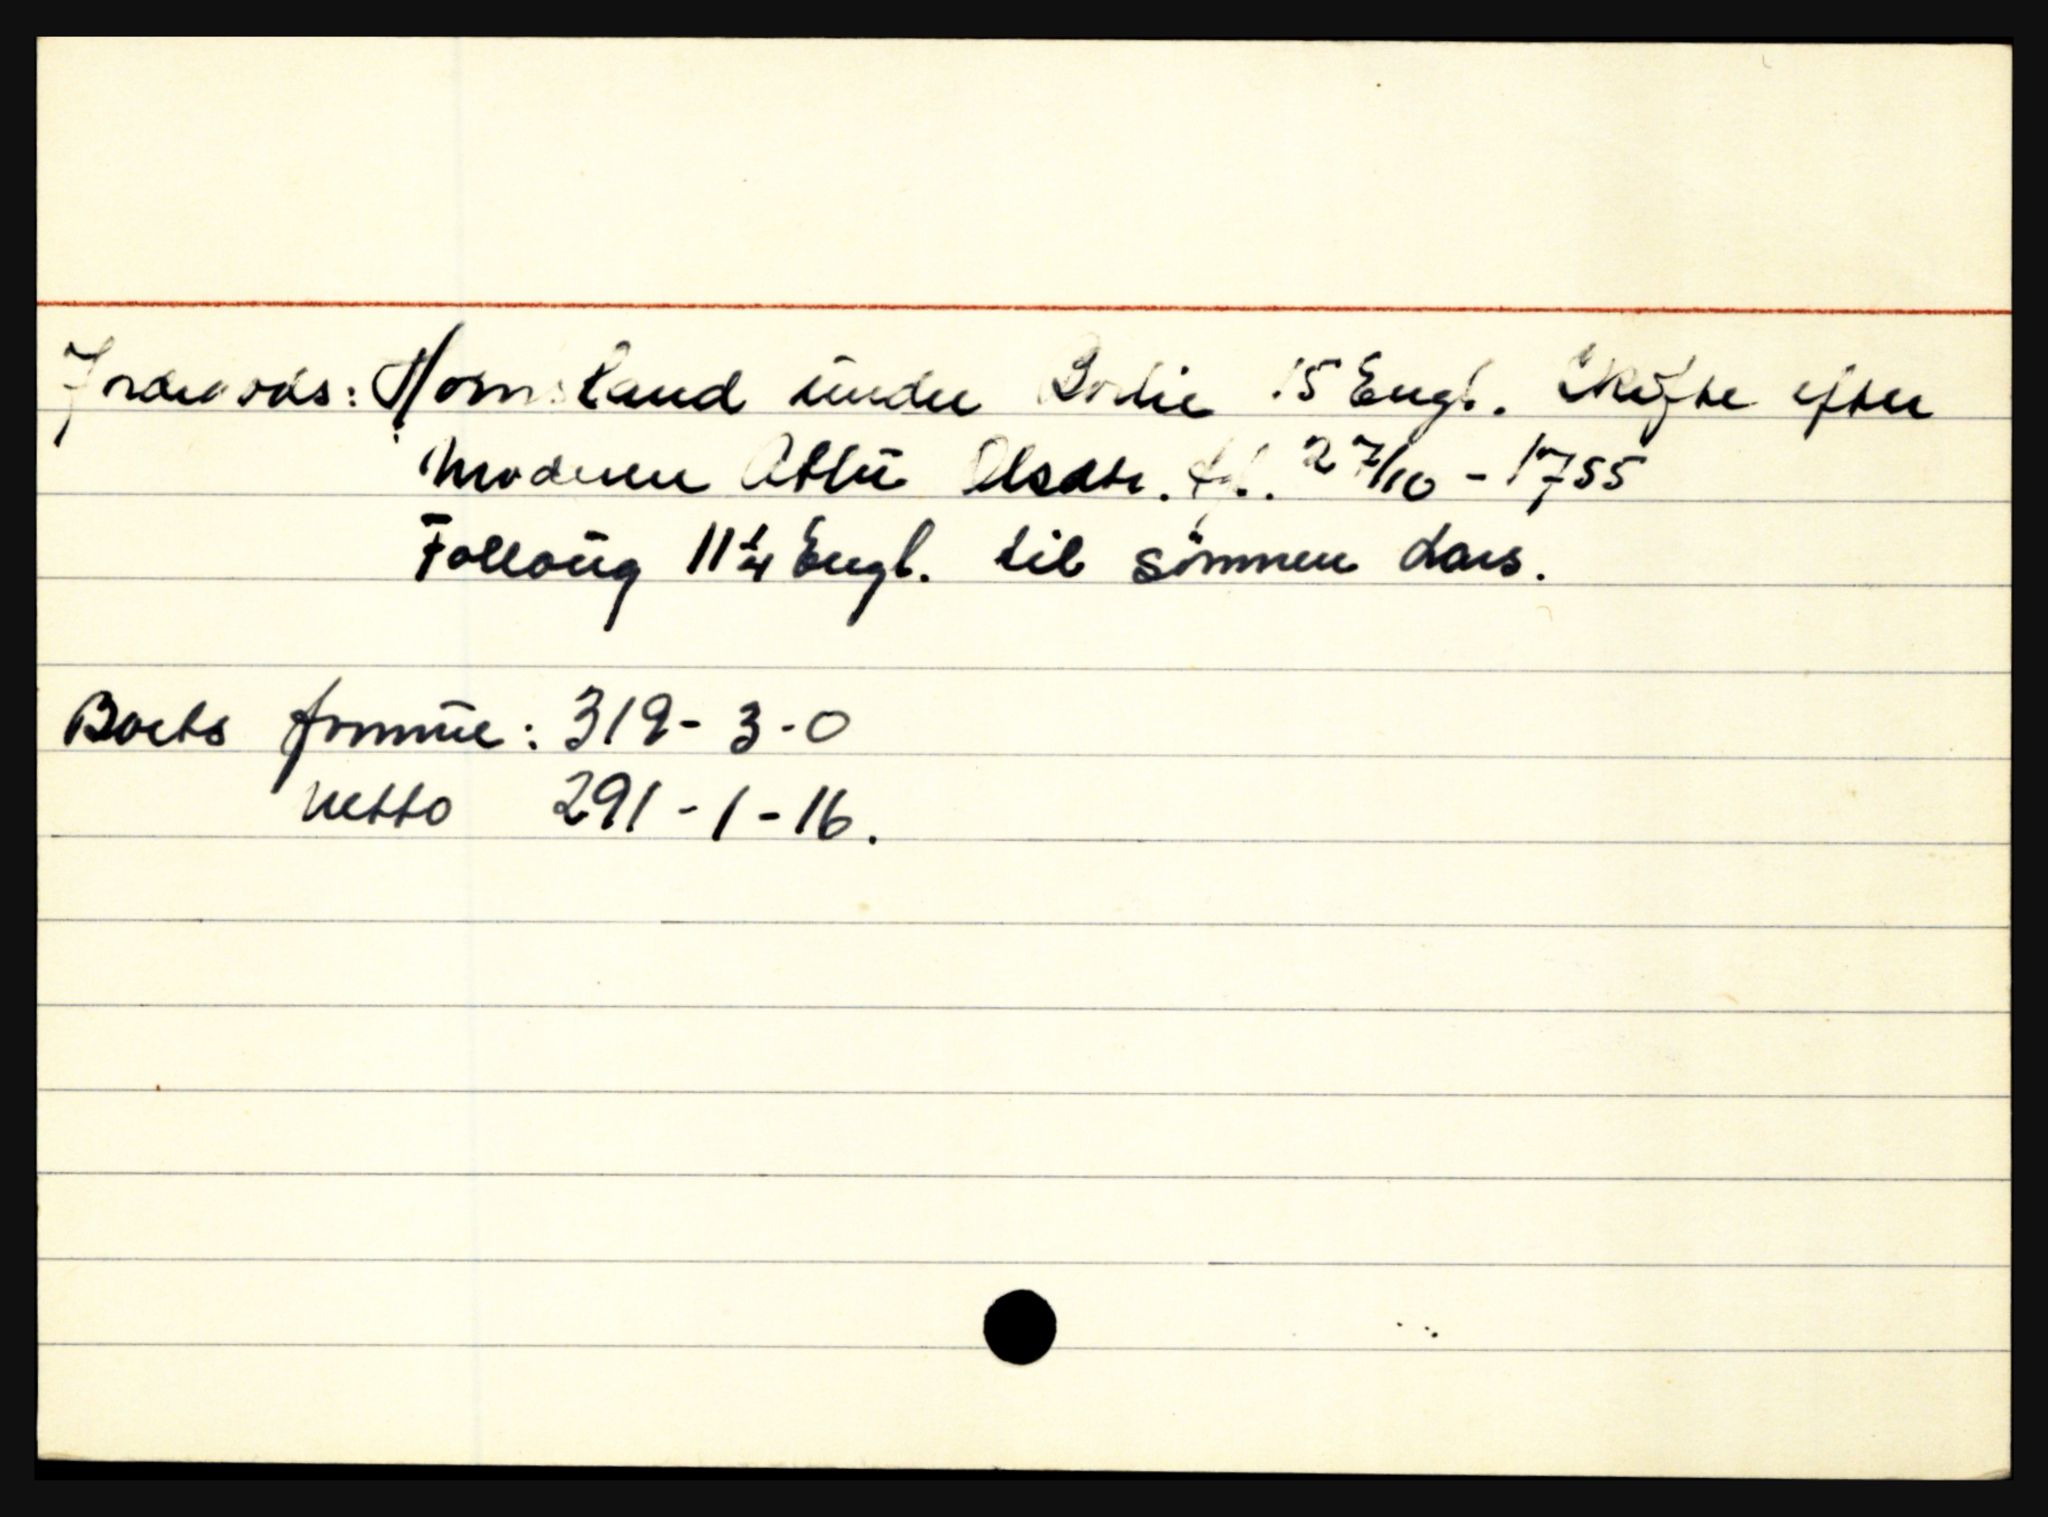 Jordegods: Hornsland under Borlie 15 Engl. Skifte efter
Moderen Atlu Olsdtr. tgl. 27/10 - 1755
Follaug 11 1/4 Engl. til sønnen Lars.
Boets formue: 319 - 3 - 0
netto 291 - 1 - 16.